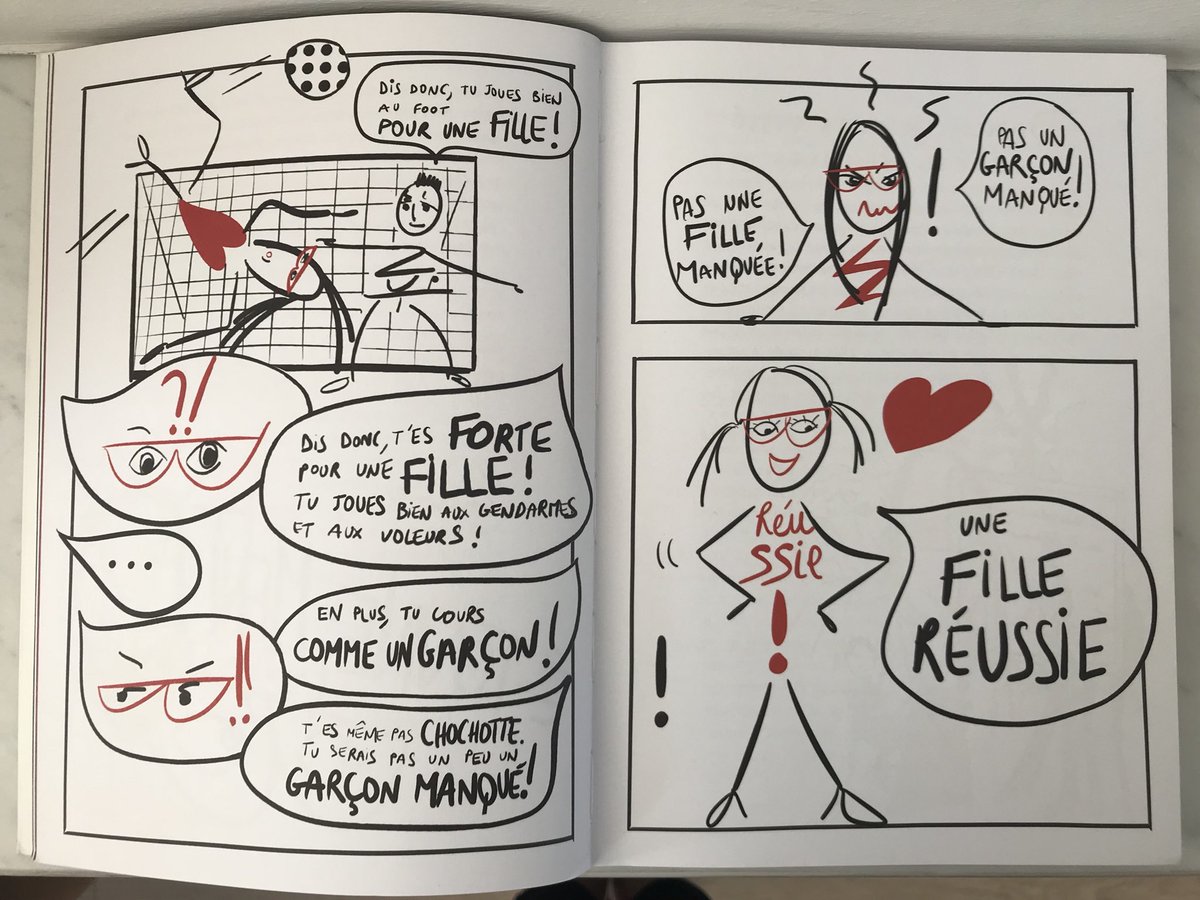 DIS DONC, TU JOUES BIEN
AU FOOT
POUR UNE FILLE !
?!
DIS DONC, T'ES FORTE
POUR UNE FILLE !
TU JOUES BIEN AUX GENDARMES
ET AUX VOLEURS !
...
EN PLUS, TU COURS
COMME UN GARÇON !
!!
T'ES MÊME PAS CHOCHOTTE.
TU SERAIS PAS UN PEU UN
GARÇON MANQUÉ !
PAS UNE
FILLE
MANQUÉE !
!
PAS UN
GARÇON
MANQUÉ !
Réu
ssie
!
!
UNE
FILLE
RÉUSSIE